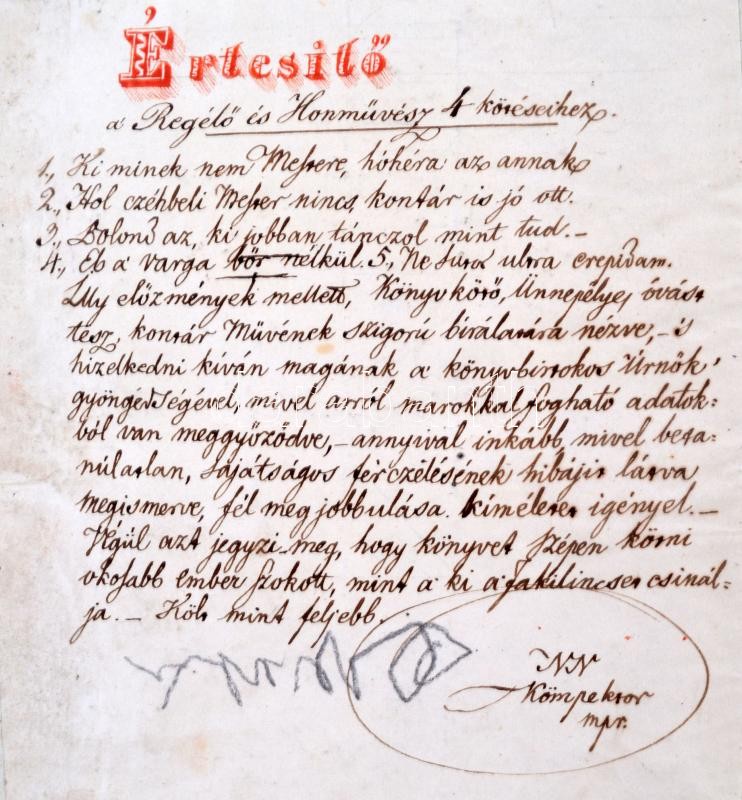 Értesitő
a Regélő és Honművész 4 kötéseihez.
1., Ki minek nem Mestere, hóhéra az annak
2., Hol czéhbeli Mester nincs, kontár is jó ott.
3., Bolond az, ki jobban tánczol mint tud.–
4., Eb a varga bőr nélkül. 5., Ne sutor ultra crepidam.
Illy előzmények mellett, Könyvkötő, Ünnepélyes óvást
tesz, kontár Művének szigorú birálatára nézve,– 's
hizelkedni kíván magának a könyvbirtokos Úrnők'
gyöngédségével, mivel arról marokkal fogható adatok-
ból van meggyőződve,– annyival inkább, mivel beta-
núlatlan, sajátságos férczelésének hibájit látva
megismerve, fél megjobbulása. kíméletet igényel.–
Végül azt jegyzi-meg, hogy könyvet szépen kötni
okosabb ember szokott, mint a ki a' fakilincset csinál-
ja.– Költ mint feljebb.
NN
Kömpektor
mpr.